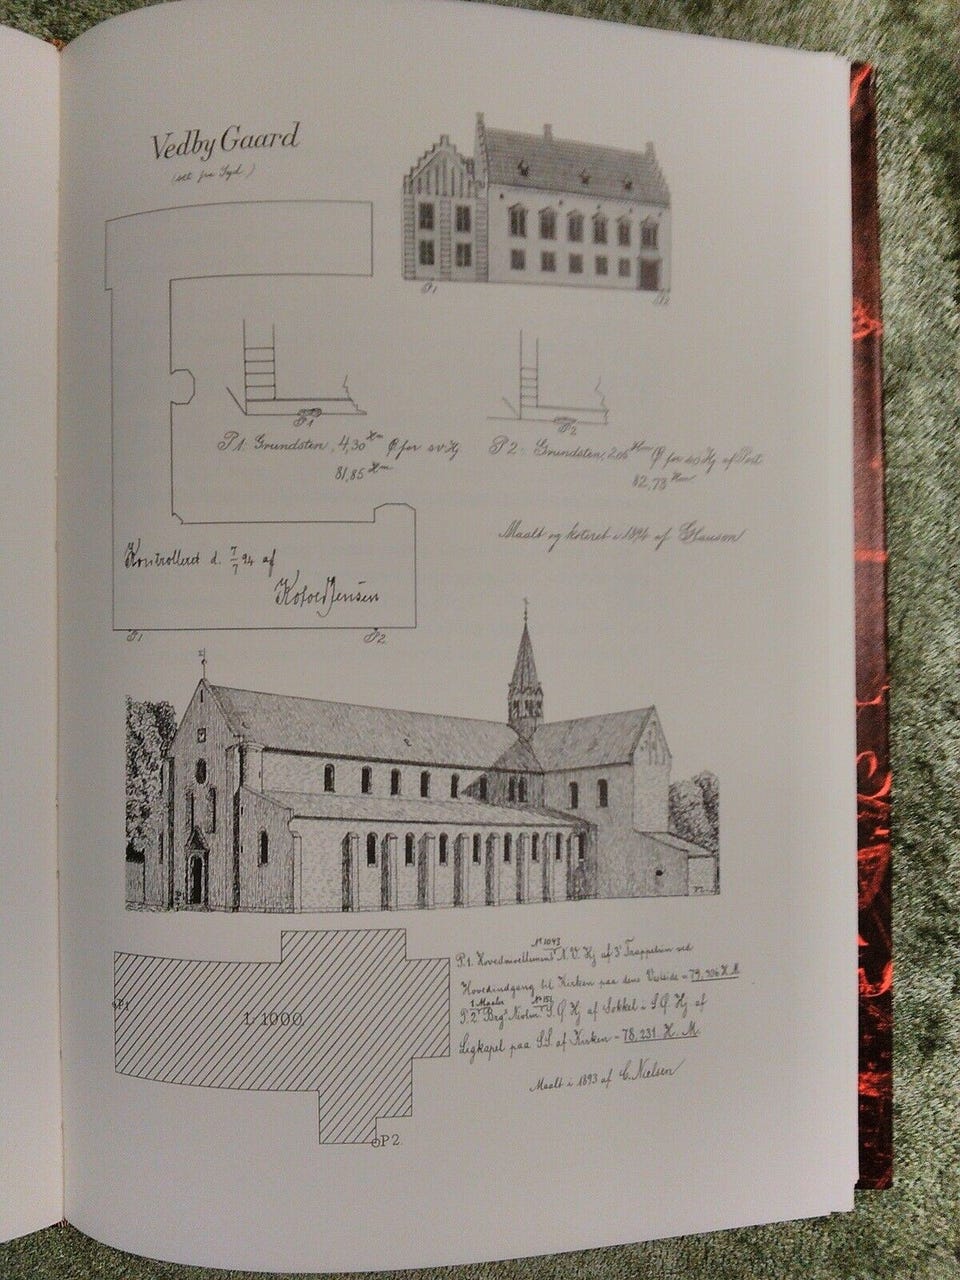 Vedby Gaard
(set fra Syd.)
P1
P2
P1
P2
P1: Grundsten, 4,30 Hm Ø for SV Hj
81,85 Hm
P2: Grundsten, Ø for Hj af Port
82,73 Hm
Maalt og koteret i 1894 af Clauson
Kontrolleret d. 7/7 94 af
Kofoed Jensen
P1
P2
No 1043
P.1. Hovednivellement N.V. Hj af 3' Trappetrin ved
Hovedindgang til Kirken paa dens Vestside = 79,306 H.M.
1 Maaler No 151
P.2 S.Ø Hj af Sokkel i S.Ø. Hj. af
Ligkapel paa S.S. af Kirken = 78,231. H. M.
Maalt i 1893 af C. Nielsen
P1
1:1000
P2